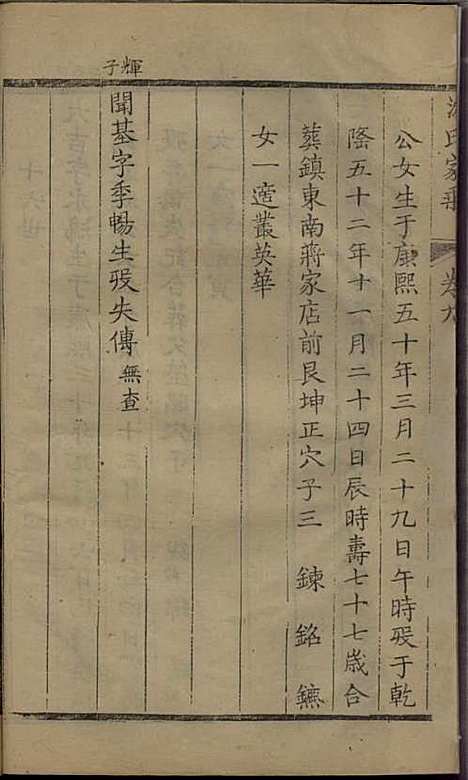 氏家乘 卷九
公女生于康熙五十年三月二十九日午時歿于乾
隆五十二年十一月二十四日辰時壽七十七歲合
葬鎮東南蔣家店前艮坤正穴子三 鍊 銘 鑣
女一適叢英華
輝子
聞基字季暢生歿失傳無查